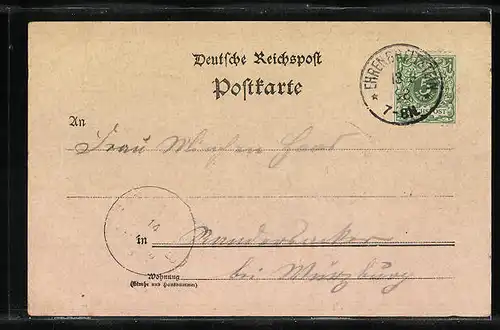 Deutsche Reichspost
Postkarte
EHRENBREITSTEIN
7-8N.
An
Frau
in Randersacker
bei Würzburg
Wohnung
(Straße und Hausnummer)